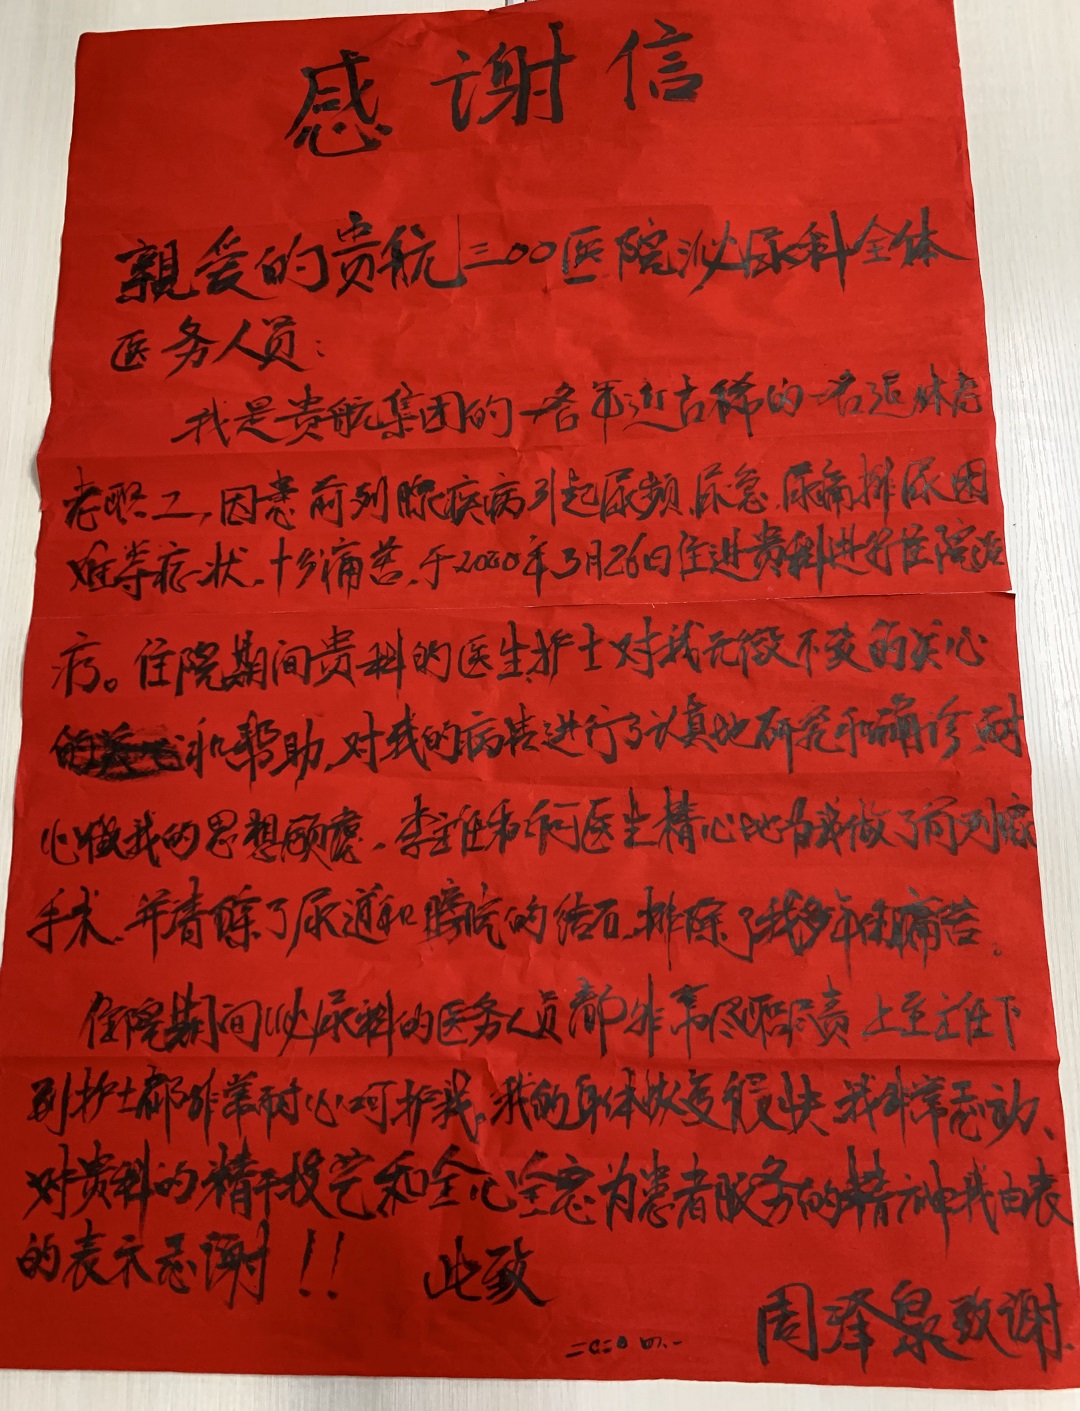 感谢信
亲爱的贵航三00医院泌尿科全体
医务人员：
我是贵航集团的一名年近古稀的一名退休
老职工，因患前列腺疾病引起尿频、尿急、尿痛排尿困
难等症状，十分痛苦，于2020年3月26日住进贵科进行住院治
疗。住院期间贵科的医生护士对我无微不至的关心
和帮助，对我的病情进行了认真地研究和确诊，耐
心做我的思想顾虑，李主任和何医生精心地为我做了前列腺
手术，并清除了尿道和膀胱的结石，排除了我多年的痛苦。
住院期间泌尿科的医务人员都非常尽职尽责上至主任下
到护士都非常耐心呵护我。我的身体恢复很快，我非常感动、
对贵科的精干技艺和全心全意为患者服务的精神我由衷
的表示感谢！！ 此致
周泽泉致谢.
二0二0 四.一